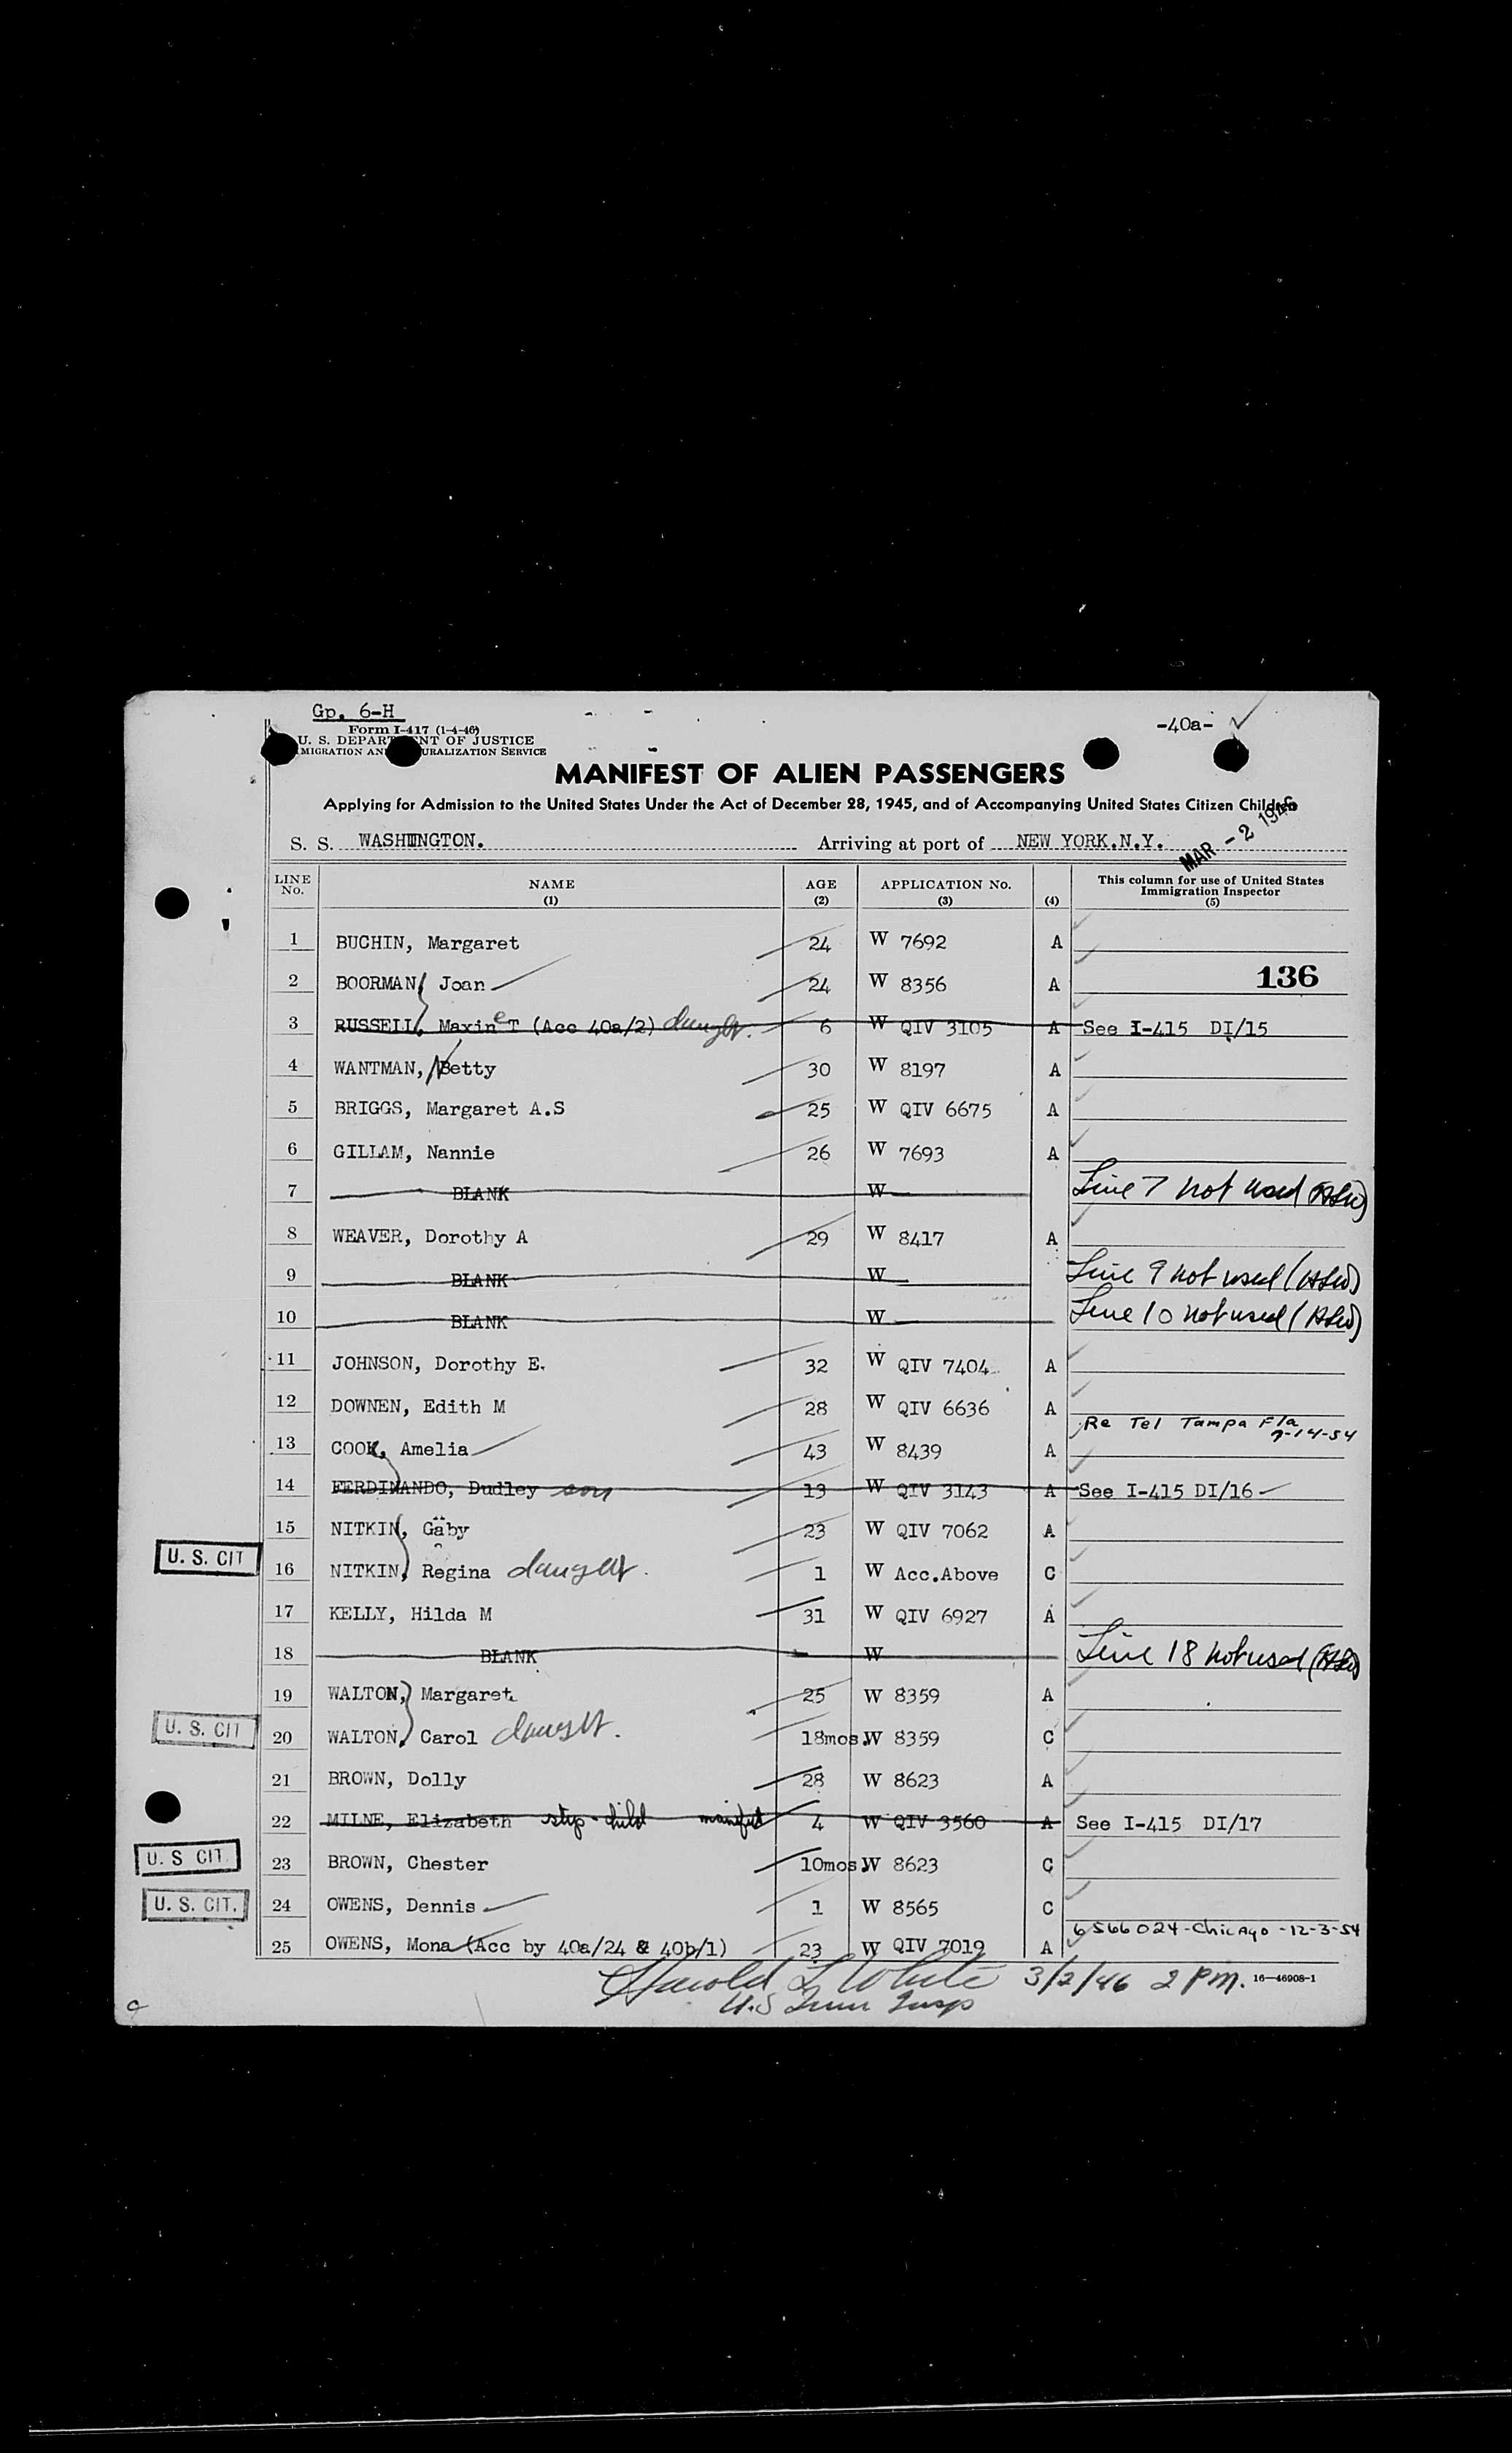 Gp. 6-H
-40a-
Form I-417 (1-4-46)
U. S. DEPARTMENT OF JUSTICE
MIGRATION AND NATURALIZATION SERVICE
MANIFEST OF ALIEN PASSENGERS
Applying for Admission to the United States Under the Act of December 28, 1945, and of Accompanying United States Citizen Children
S. S. WASHINGTON. Arriving at port of NEW YORK.N.Y. MAR - 2 1946
LINE No. NAME (1) AGE (2) APPLICATION No. (3) (4) This column for use of United States Immigration Inspector (5)
1 BUCHIN, Margaret 24 W 7692 A
136
2 BOORMAN, Joan 24 W 8356 A
3 RUSSELL, Maxine T (Acc 40a/2) daught. 6 W QIV 3105 A See I-415 DI/15
4 WANTMAN, Betty 30 W 8197 A
5 BRIGGS, Margaret A.S 25 W QIV 6675 A
6 GILLAM, Nannie 26 W 7693 A
7 BLANK W Line 7 not used (HLW)
8 WEAVER, Dorothy A 29 W 8417 A
9 BLANK W Line 9 not used (HLW)
10 BLANK W Line 10 not used (HLW)
11 JOHNSON, Dorothy E. 32 W QIV 7404 A
12 DOWNEN, Edith M 28 W QIV 6636 A
Re Tel Tampa Fla 9-14-54
13 COOK, Amelia 43 W 8439 A
14 FERDINANDO, Dudley son 13 W QIV 3143 A See I-415 DI/16
15 NITKIN, Gäby 23 W QIV 7062 A
U. S. CIT 16 NITKIN, Regina daught. 1 W Acc.Above C
17 KELLY, Hilda M 31 W QIV 6927 A
18 BLANK W Line 18 not used (HLW)
19 WALTON, Margaret. 25 W 8359 A
U. S. CIT 20 WALTON, Carol daught. 18mos. W 8359 C
21 BROWN, Dolly 28 W 8623 A
22 MILNE, Elizabeth step-child 4 W QIV 3560 A See I-415 DI/17
U. S CIT. 23 BROWN, Chester 10mos. W 8623 C
U. S. CIT. 24 OWENS, Dennis 1 W 8565 C
6566024-Chicago-12-3-54
25 OWENS, Mona (Acc by 40a/24 & 40b/1) 23 W QIV 7019 A
Harold L White 3/2/46 2 PM. 16—46908-1
U.S Imm Insp